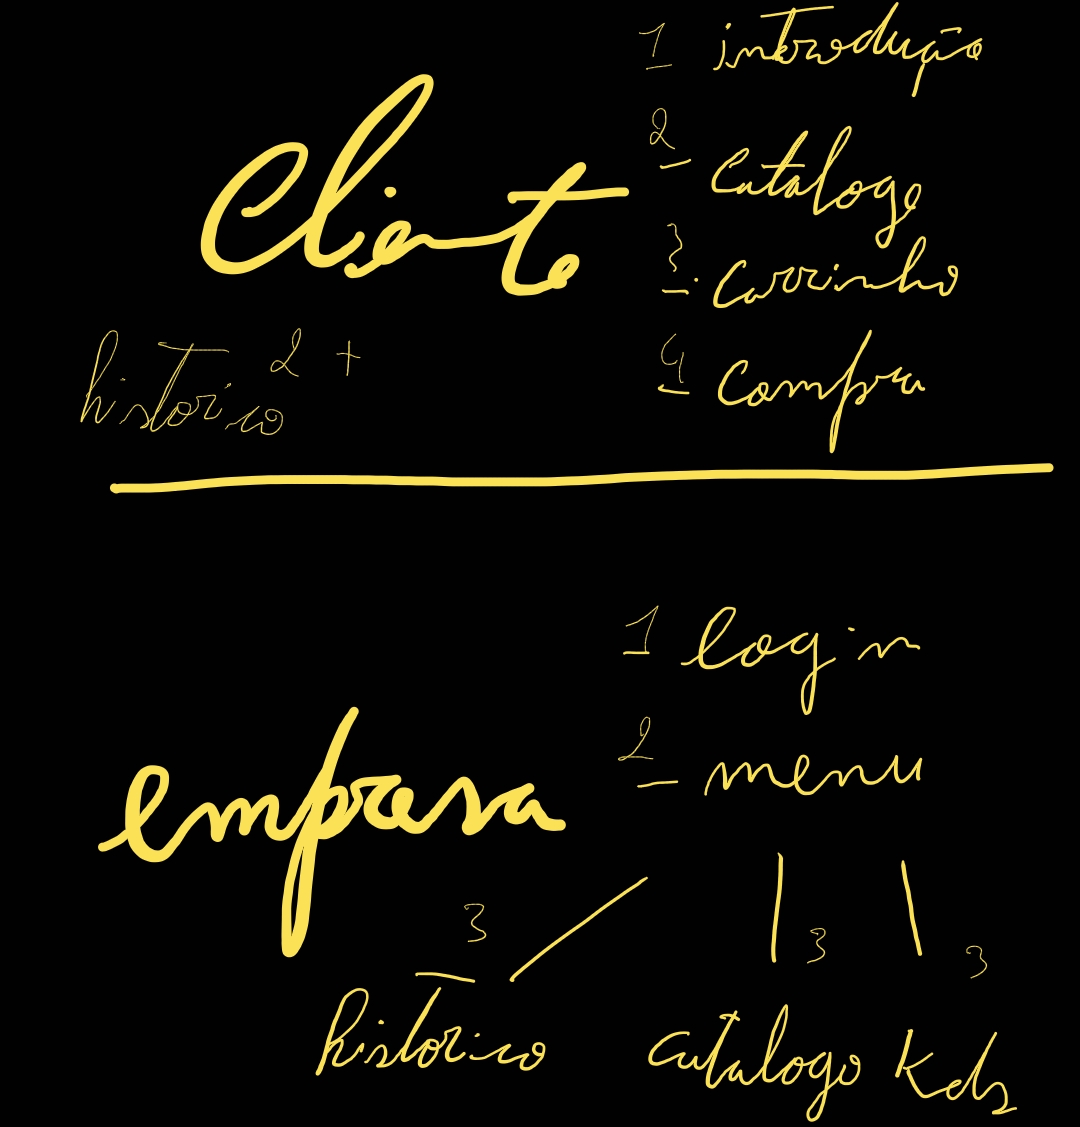 Cliente
1 introdução
2 Catalogo
3. Carrinho
4 Compra
historico 2 +
empresa
1 login
2 menu
3 historico
3 catalogo
3 Kds